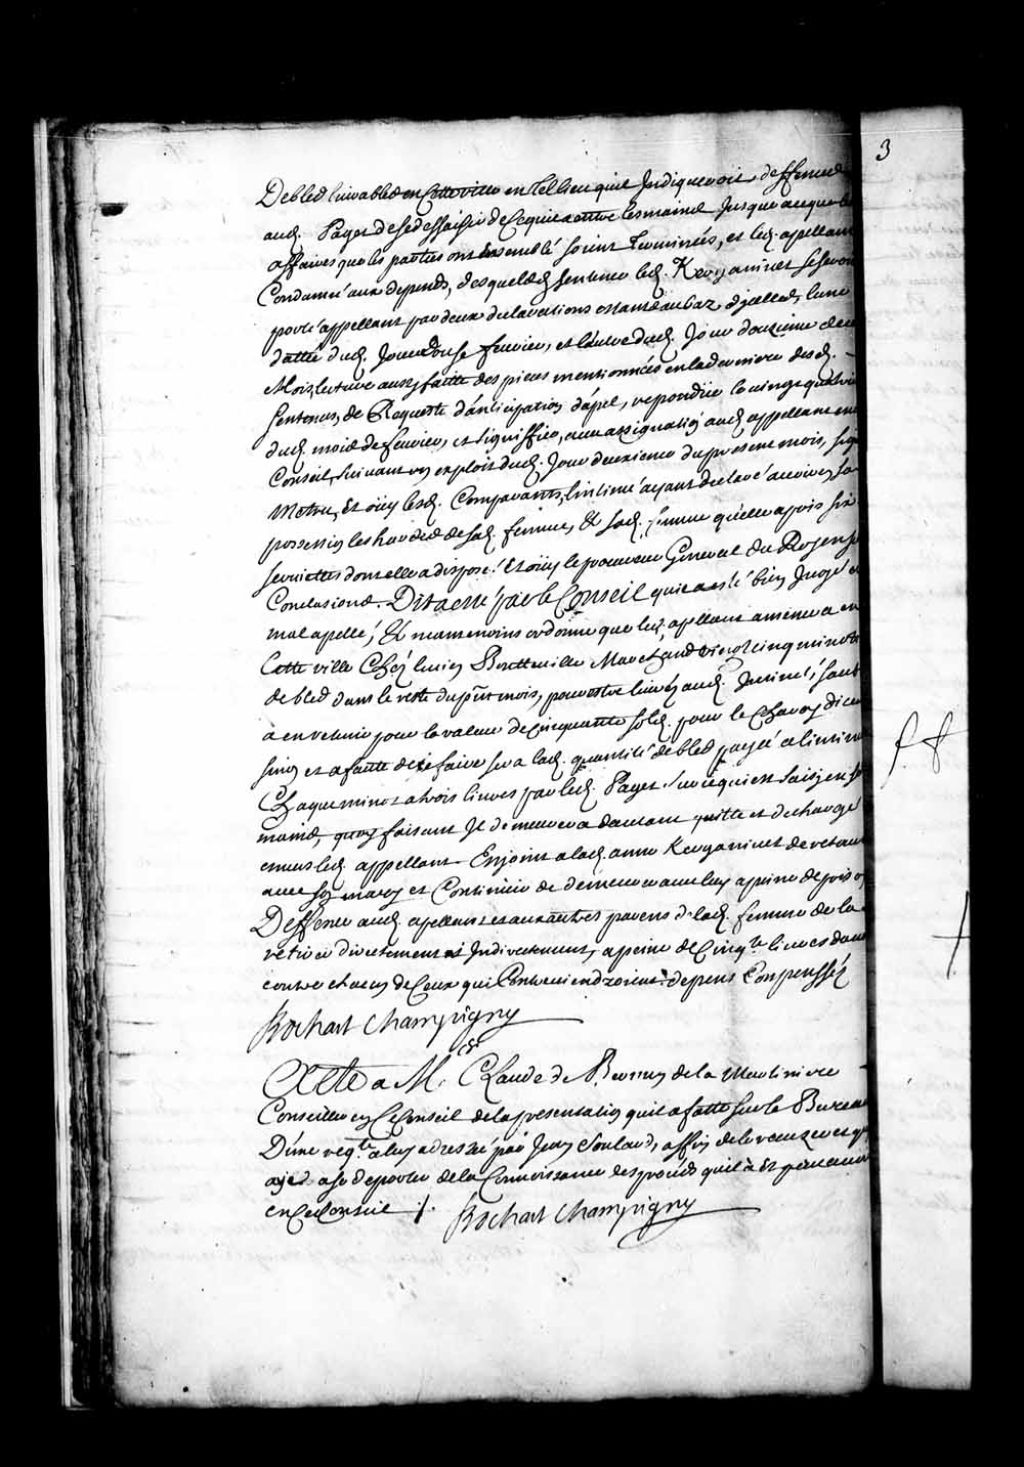 3
De bled livrables en Cette ville en tel lieu quil Indiqueroit, deffences
aud. Pages de se dessaisir de ce quil a entre les mains Jusque a ce que les
affaires que les parties ont Ensemble soient Terminées, et led. apellant
Condamné aux depends, desquelles sentences led. Kerganivet se seroit
porté appellant par deux declarations estant au bas d'jcelles, l'une
dattée dud. Jour douse feuvrier, et l'autre dud. Jour douzieme dud.
Mois, lecture aussy faitte des pieces mentionnées en la derniere desd.
sentences, de Requeste d'anticipation d'apel, repondüe le vingt quatre
dud. mois de feuvrier, et signiffiée, avec assignation aud. appellant en ce
Conseil, suivant exploit dud. Jour deuxieme du present mois, signé
Metru, Et oüy lesd. Comparants, l'intimé ayant declaré avoir en sa
possession les hardes de sad. femme, Et sad. femme qu'elle a pris six
serviettes dont elle a disposé! Et oüy le procureur General du Roy en ses
Conclusions. Dit a esté par le Conseil quil a esté bien Jugé et
mal apellé, Et neanmoins ordonne que led. apellant amenera en
Cette ville Chez lucien Boutteville Marchand vingt cinq minots
de bled dans le reste du pnt mois, pour estre livrez aud. Intimé, sauf
a en retenir pour la valeur de Cinquante solz. pour le Charoy d'iceux
sinon et a faute de ce faire sera lad. quantité de bled payée a l'intimé
Chaque minot a trois livres par led. Pages Sur ce qui est saisy en ses
mains, quoy faisant Il demeurera d'autant quitte et dechargé
envers led. appellant. Enjoint a lad. anne Kerganivet de retourner
avec son mary et Continüer de demeurer avec luy a peine de prison
Deffence aud. apellant et aux autres parens de lad. femme de la
retirer directement et Indirectement, a peine de Cinqte livres damande
contre chacun de Ceux qui Contreviendroient. depens Compensséz
Bochart Champigny
Acte a Me. Claude de Bermen de la Martiniere
Conseiller en Ce Conseil de la presentation quil a faitte sur le Bureau
D'une reqte. a luy adressée par Jean Soulard, affin de
ayt a se deporter de la Connoissance des procéds quil a Et
en Ce Conseil ./.
Bochart Champigny